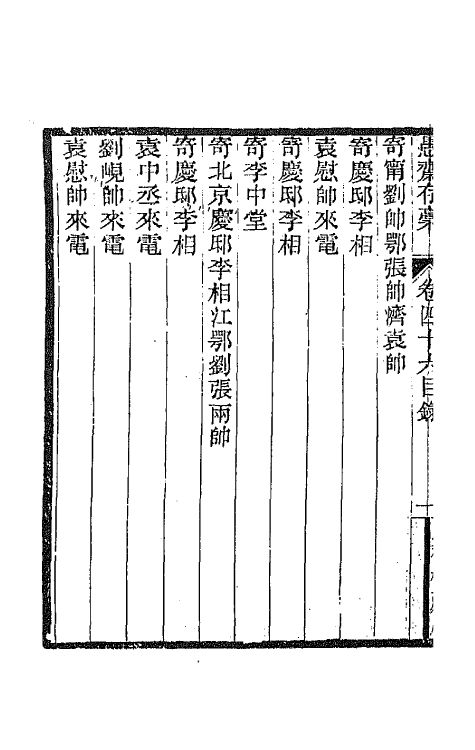 愚齋存稾 卷四十六目錄 一
寄甯劉帥鄂張帥濟袁帥
寄慶邸李相
袁慰帥來電
寄慶邸李相
寄李中堂
寄北京慶邸李相江鄂劉張兩帥
寄慶邸李相
袁中丞來電
劉峴帥來電
袁慰帥來電